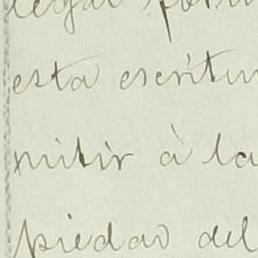 legal
esta escritu
mitir à la
piedad del